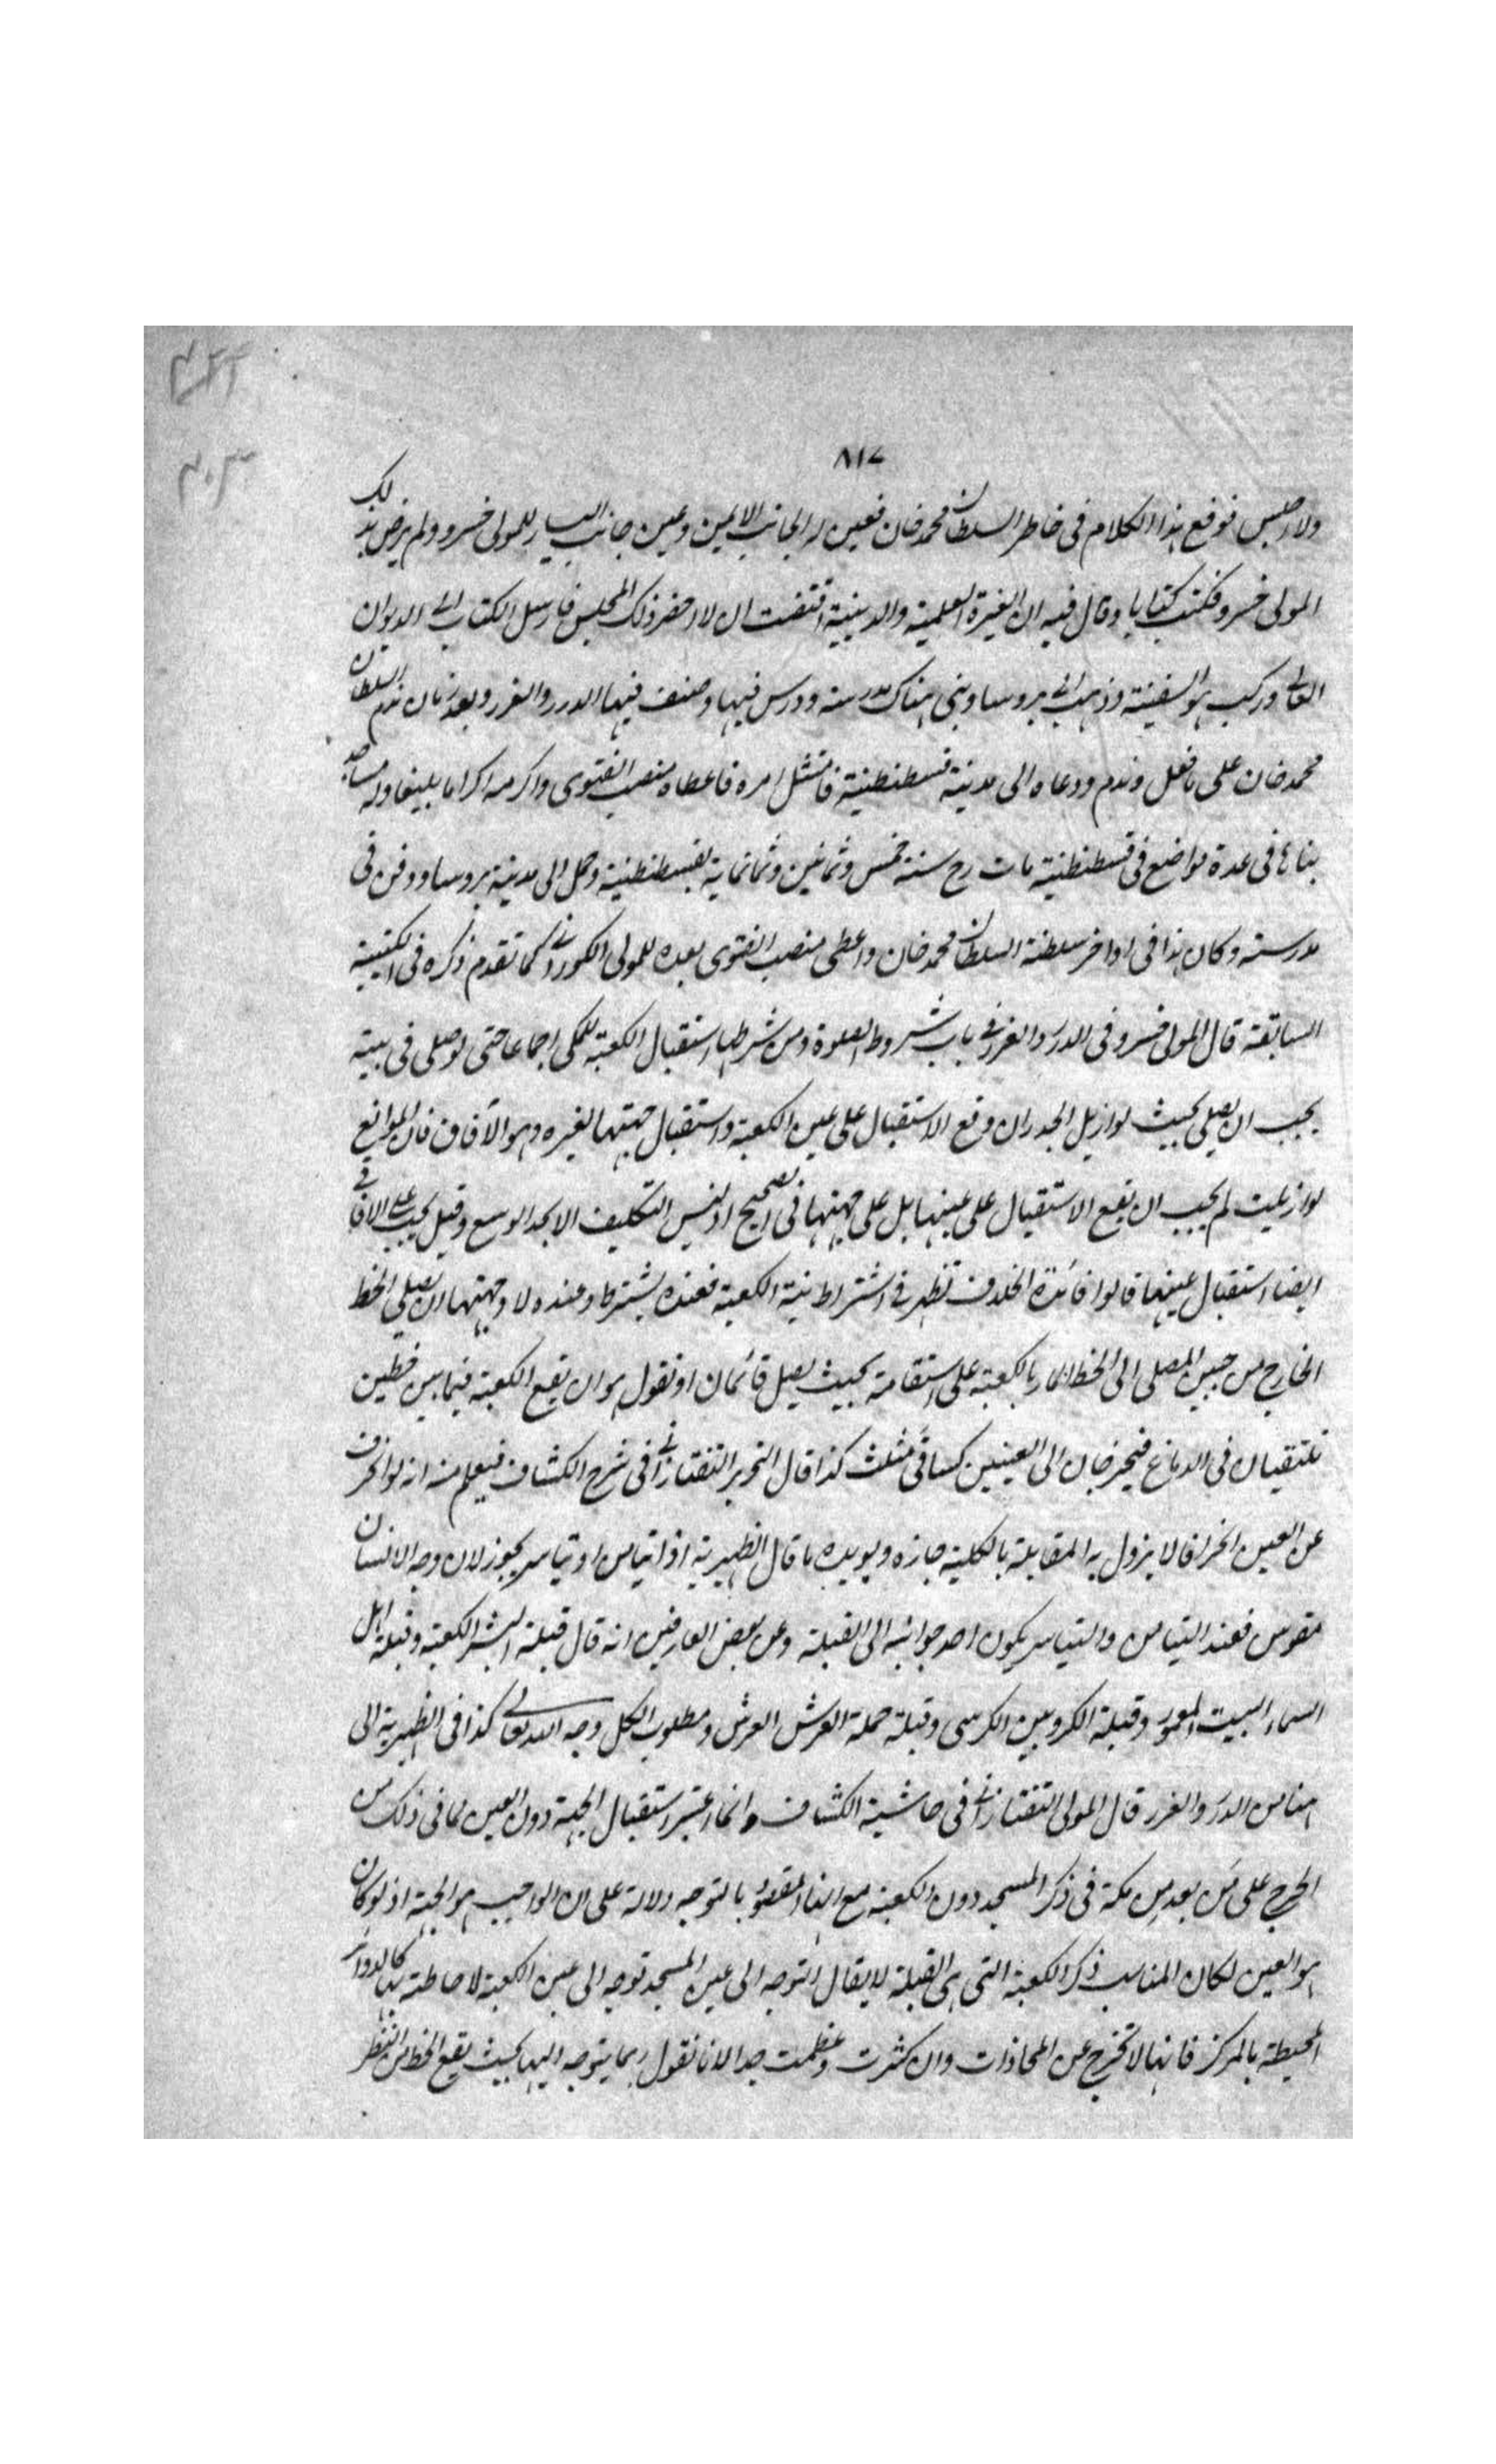 ٨١٧
ولا اجلس فوقع هذا الكلام فى خاطر السلطان محمد خان فعين له الجانب الايمن وعين جانب اليسار للمولى خسرو ولم يرض بذلك
المولى خسرو فكتب كتابا وقال فيه ان الغيرة العلمية والدينية اقتضت ان لا احضر ذلك المجلس فارسل الكتاب الى الديوان
العالى وركب هو السفينة وذهب الى بروسا وبنى هناك مدرسة ودرس فيها وصنف فيها الدرر والغرر وبعد زمان ندم السلطان
محمد خان على ما فعل وندم ودعاه الى مدينة قسطنطنية فامتثل امره فاعطاه منصب الفتوى واكرمه اكراما بليغا وله مساجد
بناها فى عدة مواضع فى قسطنطنية مات رح سنة خمس وثمانين وثمانماية بقسطنطنية وحمل الى مدينة بروسا ودفن فى
مدرسته وكان هذا فى اواخر سلطنة السلطان محمد خان واعطى منصب الفتوى بعده للمولى الكورانى كما تقدم ذكره فى الكتيبة
السابقة قال المولى خسرو فى الدرر والغرر فى باب شروط الصلوة ومن شرطها استقبال الكعبة للمكى اجماعا حتى لو صلى فى بيته
يجب ان يصلى بحيث لو ازيل الجدران وقع الاستقبال على عين الكعبة واستقبال جهتها لغيره وهو الآفاقى فان الموانع
لو ازيلت لم يجب ان يقع الاستقبال على عينها بل على جهتها فى الصحيح اذ ليس التكليف الا بحد الوسع وقيل يجب على الافاقى
ايضا استقبال عينها قالوا فائدة الخلاف تظهر فى اشتراط نية الكعبة فعنده يشترط وعنده لا وجهتها ان يصلى الخط
الخارج من جبين المصلى الى الخط المار بالكعبة على استقامة بحيث يصل قائمان او نقول هو ان تقع الكعبة فيما بين خطين
تلتقيان فى الدماغ فيخرجان الى العينين كساقى مثلث كذا قال النحرير التفتازانى فى شرح الكشاف فيعلم منه انه لو انحرف
عن العين انحرافا لا يزول به المقابلة بالكلية جازه ويويده ما قال الظهيرية اذا تيامن او تياسر يجوز لان وجه الانسان
مقوس فعند التيامن والتياسر يكون احد جوانبه الى القبلة وعن بعض العارفين انه قال قبلة البشر الكعبة وقبلة اهل
السماء البيت المعمور وقبلة الكروبين الكرسى وقبلة حملة العرش العرش ومطلوب الكل وجه الله تعالى كذا فى الظهيرية الى
هنا من الدرر والغرر قال المولى التفتازانى فى حاشية الكشاف وانما اعتبر استقبال الجهة دون العين لما فى ذلك من
الحرج على من بعد من مكة فى ذكر المسجد دون الكعبة مع انها المقصود بالتوجه دلالة على ان الواجب هو الجهة اذ لو كان
هو العين لكان المناسب ذكر الكعبة التى هى القبلة لا يقال التوجه الى عين المسجد توجه الى عين الكعبة لاحاطته بها كالدوائر
المحيطة بالمركز فانها لا تخرج عن المحاذات وان كثرت وعظمت جدا لانا نقول ربما يتوجه اليها بحيث يقع الخط من النظر